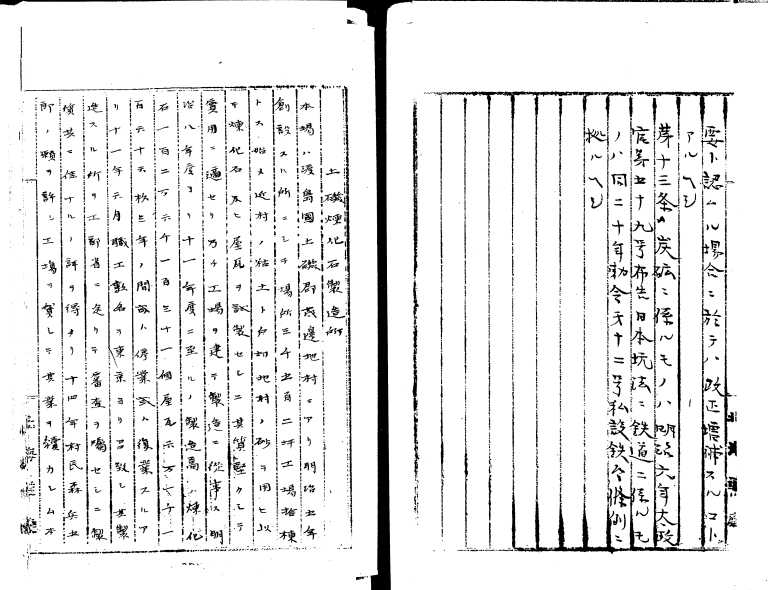 要ト認ムル場合ニ於テハ改正増補スルコト
アルヘシ
第十三条 炭砿ニ係ルモノハ明治六年太政
官第五十九号布告日本坑法ニ鉄道ニ係ルモ
ノハ同二十年勅令第十二号私設鉄道条例ニ
拠ルヘシ
上磯煉化石製造所
本場ハ渡島國上磯郡茂邊地村ニアリ明治五年
創設スル所ニシテ場所三千五百二坪工場拾棟
トス始メ近村ノ粘土ト當別地村ノ砂ヲ用ヒ以
テ煉化石及ヒ屋瓦ヲ試製セシニ其質堅クシテ
愛用ニ適セリ乃チ工場ヲ建テ製造ニ從事ス明
治八年度ヨリ十一年度ニ至ルノ製造高ハ煉化
石一百二万六千一百三十一個屋瓦六万七千一
百六十五枚三年ノ間或ハ停業或ハ復業スルア
リ十一年六月職工数名ヲ東京ヨリ召致シ其製
造スル所ヲ工部省ニ送リテ審査ヲ嘱セシニ製
價共ニ佳ナルノ評ヲ得タリ十四年村民森兵五
郎ノ願ヲ許シ工場ヲ貸シテ其業ヲ續カシム本